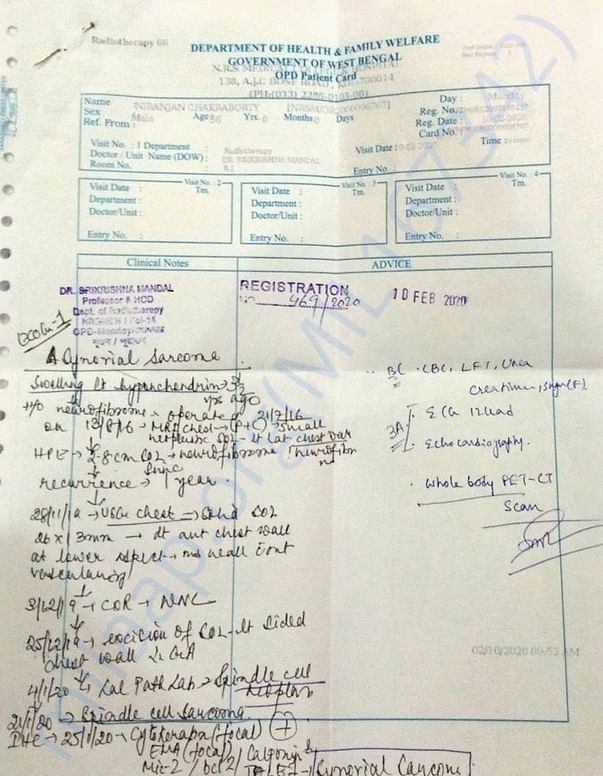 Radiotherapy 66
DEPARTMENT OF HEALTH & FAMILY WELFARE
GOVERNMENT OF WEST BENGAL
N.R.S MEDICAL COLLEGE HOSPITAL
OPD Patient Card
138, A.J.C BOSE ROAD, KOL-700014
Name NIRANJAN CHAKRABORTY
Sex Male Age 56 Yrs. 0 Months 0 Days
Ref. From :
Day : Monday
Reg. No.
Reg. Date :
Card No.
Visit No. : 1 Department : Radiotherapy
Visit Date 10-02-2020
Time
Doctor / Unit Name (DOW) : DR SRIKRISHNA MANDAL
Room No.
Entry No. :
Visit No. : 2
Visit Date : Tm.
Department :
Doctor/Unit :
Entry No. :
Visit No. : 3
Visit Date : Tm.
Department :
Doctor/Unit :
Entry No. :
Visit No. : 4
Visit Date Tm.
Department :
Doctor/Unit :
Entry No. :
Clinical Notes
ADVICE
DR. SRIKRISHNA MANDAL
Professor & HOD
Dept. of Radiotherapy
NRSMCH / Kol-14
OPD-Monday/
REGISTRATION
NO 469/2020
10 FEB 2020
ECOG-1
Synovial Sarcoma
Swelling lt hypochondrium 3½
yrs ago
H/O neurofibroma operated 21/7/16
on 13/8/16 → MRI chest → (P+C) → small
neoplastic SOL - lt lat chest wall
HPE → 2.8cm SOL → neurofibroma
recurrence since 1 year.
28/11/19 → USG chest → Solid SOL
26 x 13mm → lt ant chest wall
at lower aspect →
vascularity
3/12/19 → CXR → NNC
25/12/19 → excision of SOL - lt sided
chest wall GA
4/1/20 → Lal Path Lab → Spindle cell
neoplasm
21/1/20 → Spindle cell sarcoma
IHC → 25/1/20 → Cytokeratin (focal) +
EMA (focal) / Calponin &
Mic-2 / bcl2 / TLE-1 Synovial Sarcoma
BC - CBC, LFT, Urea
Creatinine, Sugar (F).
ECG 12 lead
Echocardiography.
Whole body PET-CT
Scan
02/10/2020 09:52 AM
milaap.org (MIL 107342)